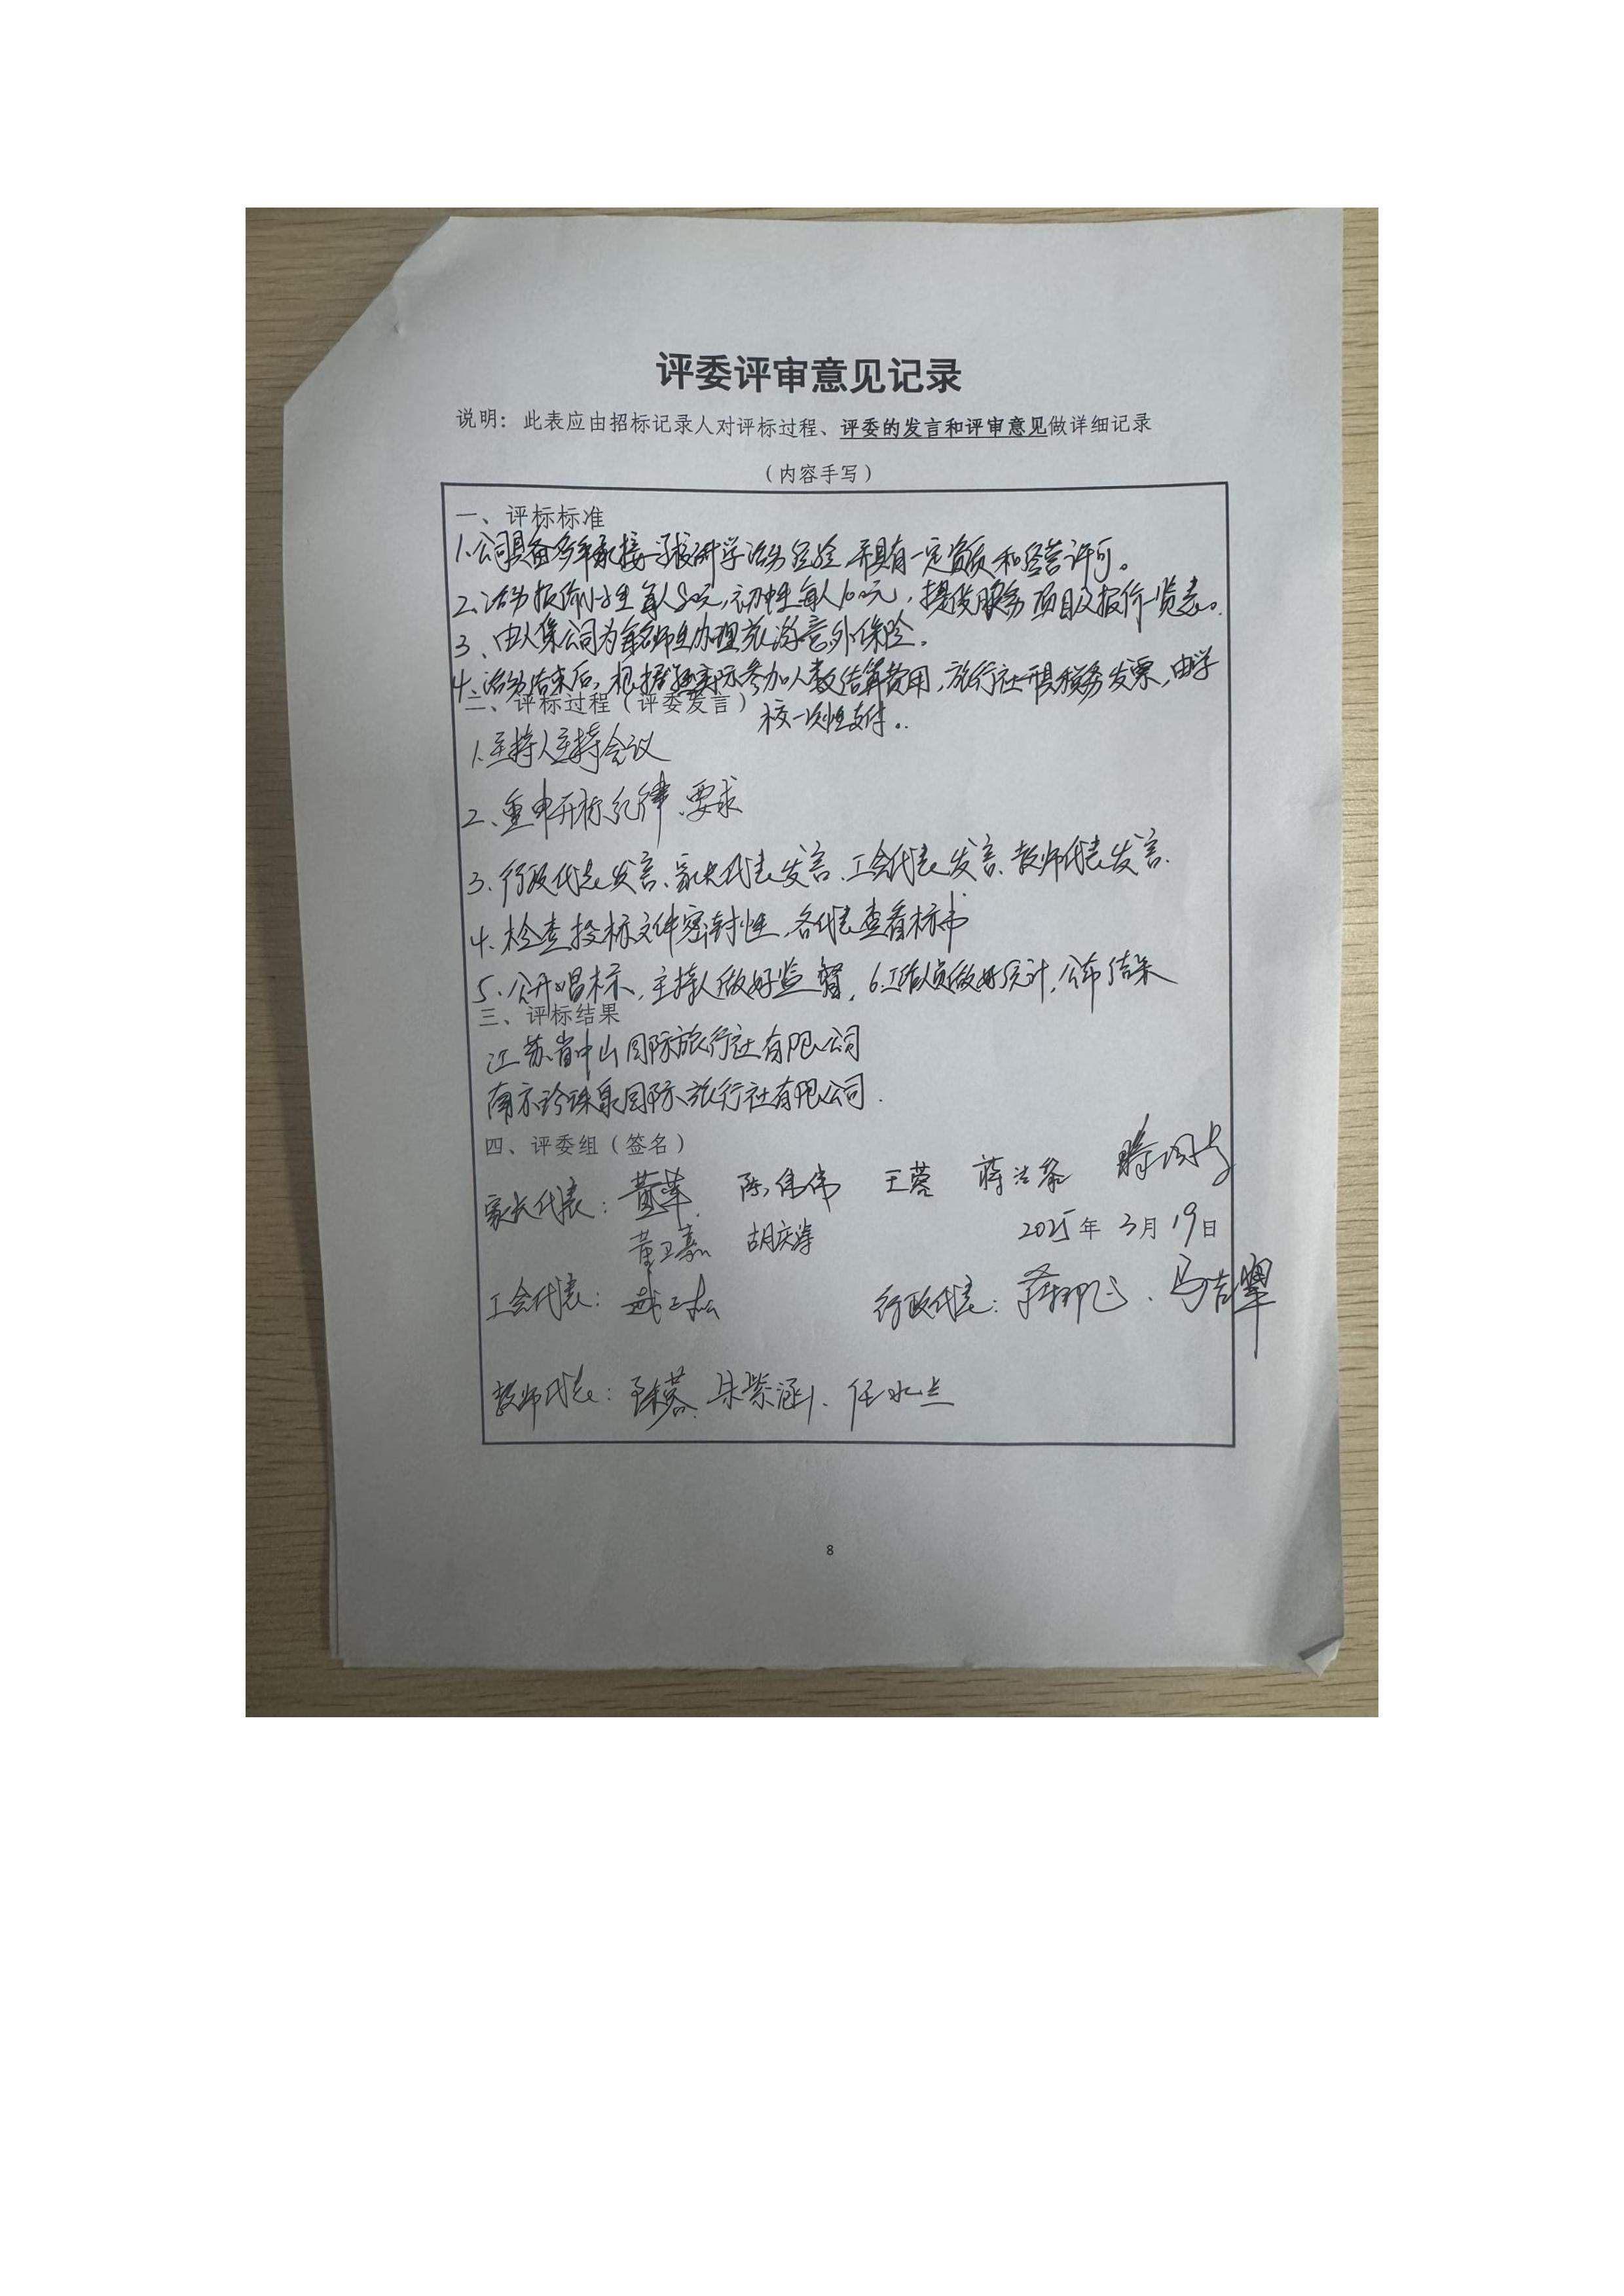 评委评审意见记录
说明：此表应由招标记录人对评标过程、评委的发言和评审意见做详细记录
（内容手写）
一、评标标准
1.公司具备多年承接学校研学活动经验,并具有一定资质和经营许可。
2.活动报价小学生每人80元,初中生每人100元，提供服务项目及报价一览表。
3、由人保公司为每名师生办理旅游意外保险。
4.活动结束后，根据实际参加人数结算费用，旅行社开具税务发票，由学
校一次性支付。
二、评标过程（评委发言）
1.主持人主持会议
2、重申开标纪律、要求
3、行政代表发言、家长代表发言、工会代表发言、教师代表发言.
4.检查投标文件密封性，各代表查看标书
5、公开唱标，主持人做好监督，6.工作人员做好统计，公布结果
三、评标结果
江苏省中山国际旅行社有限公司
南京珍珠泉国际旅行社有限公司.
四、评委组（签名）
家长代表： 陈伟伟 王蓉
2025年 3月 19日
董卫嘉 胡庆海
工会代表： 行政代表：
教师代表： 朱紫涵、任水兰
8